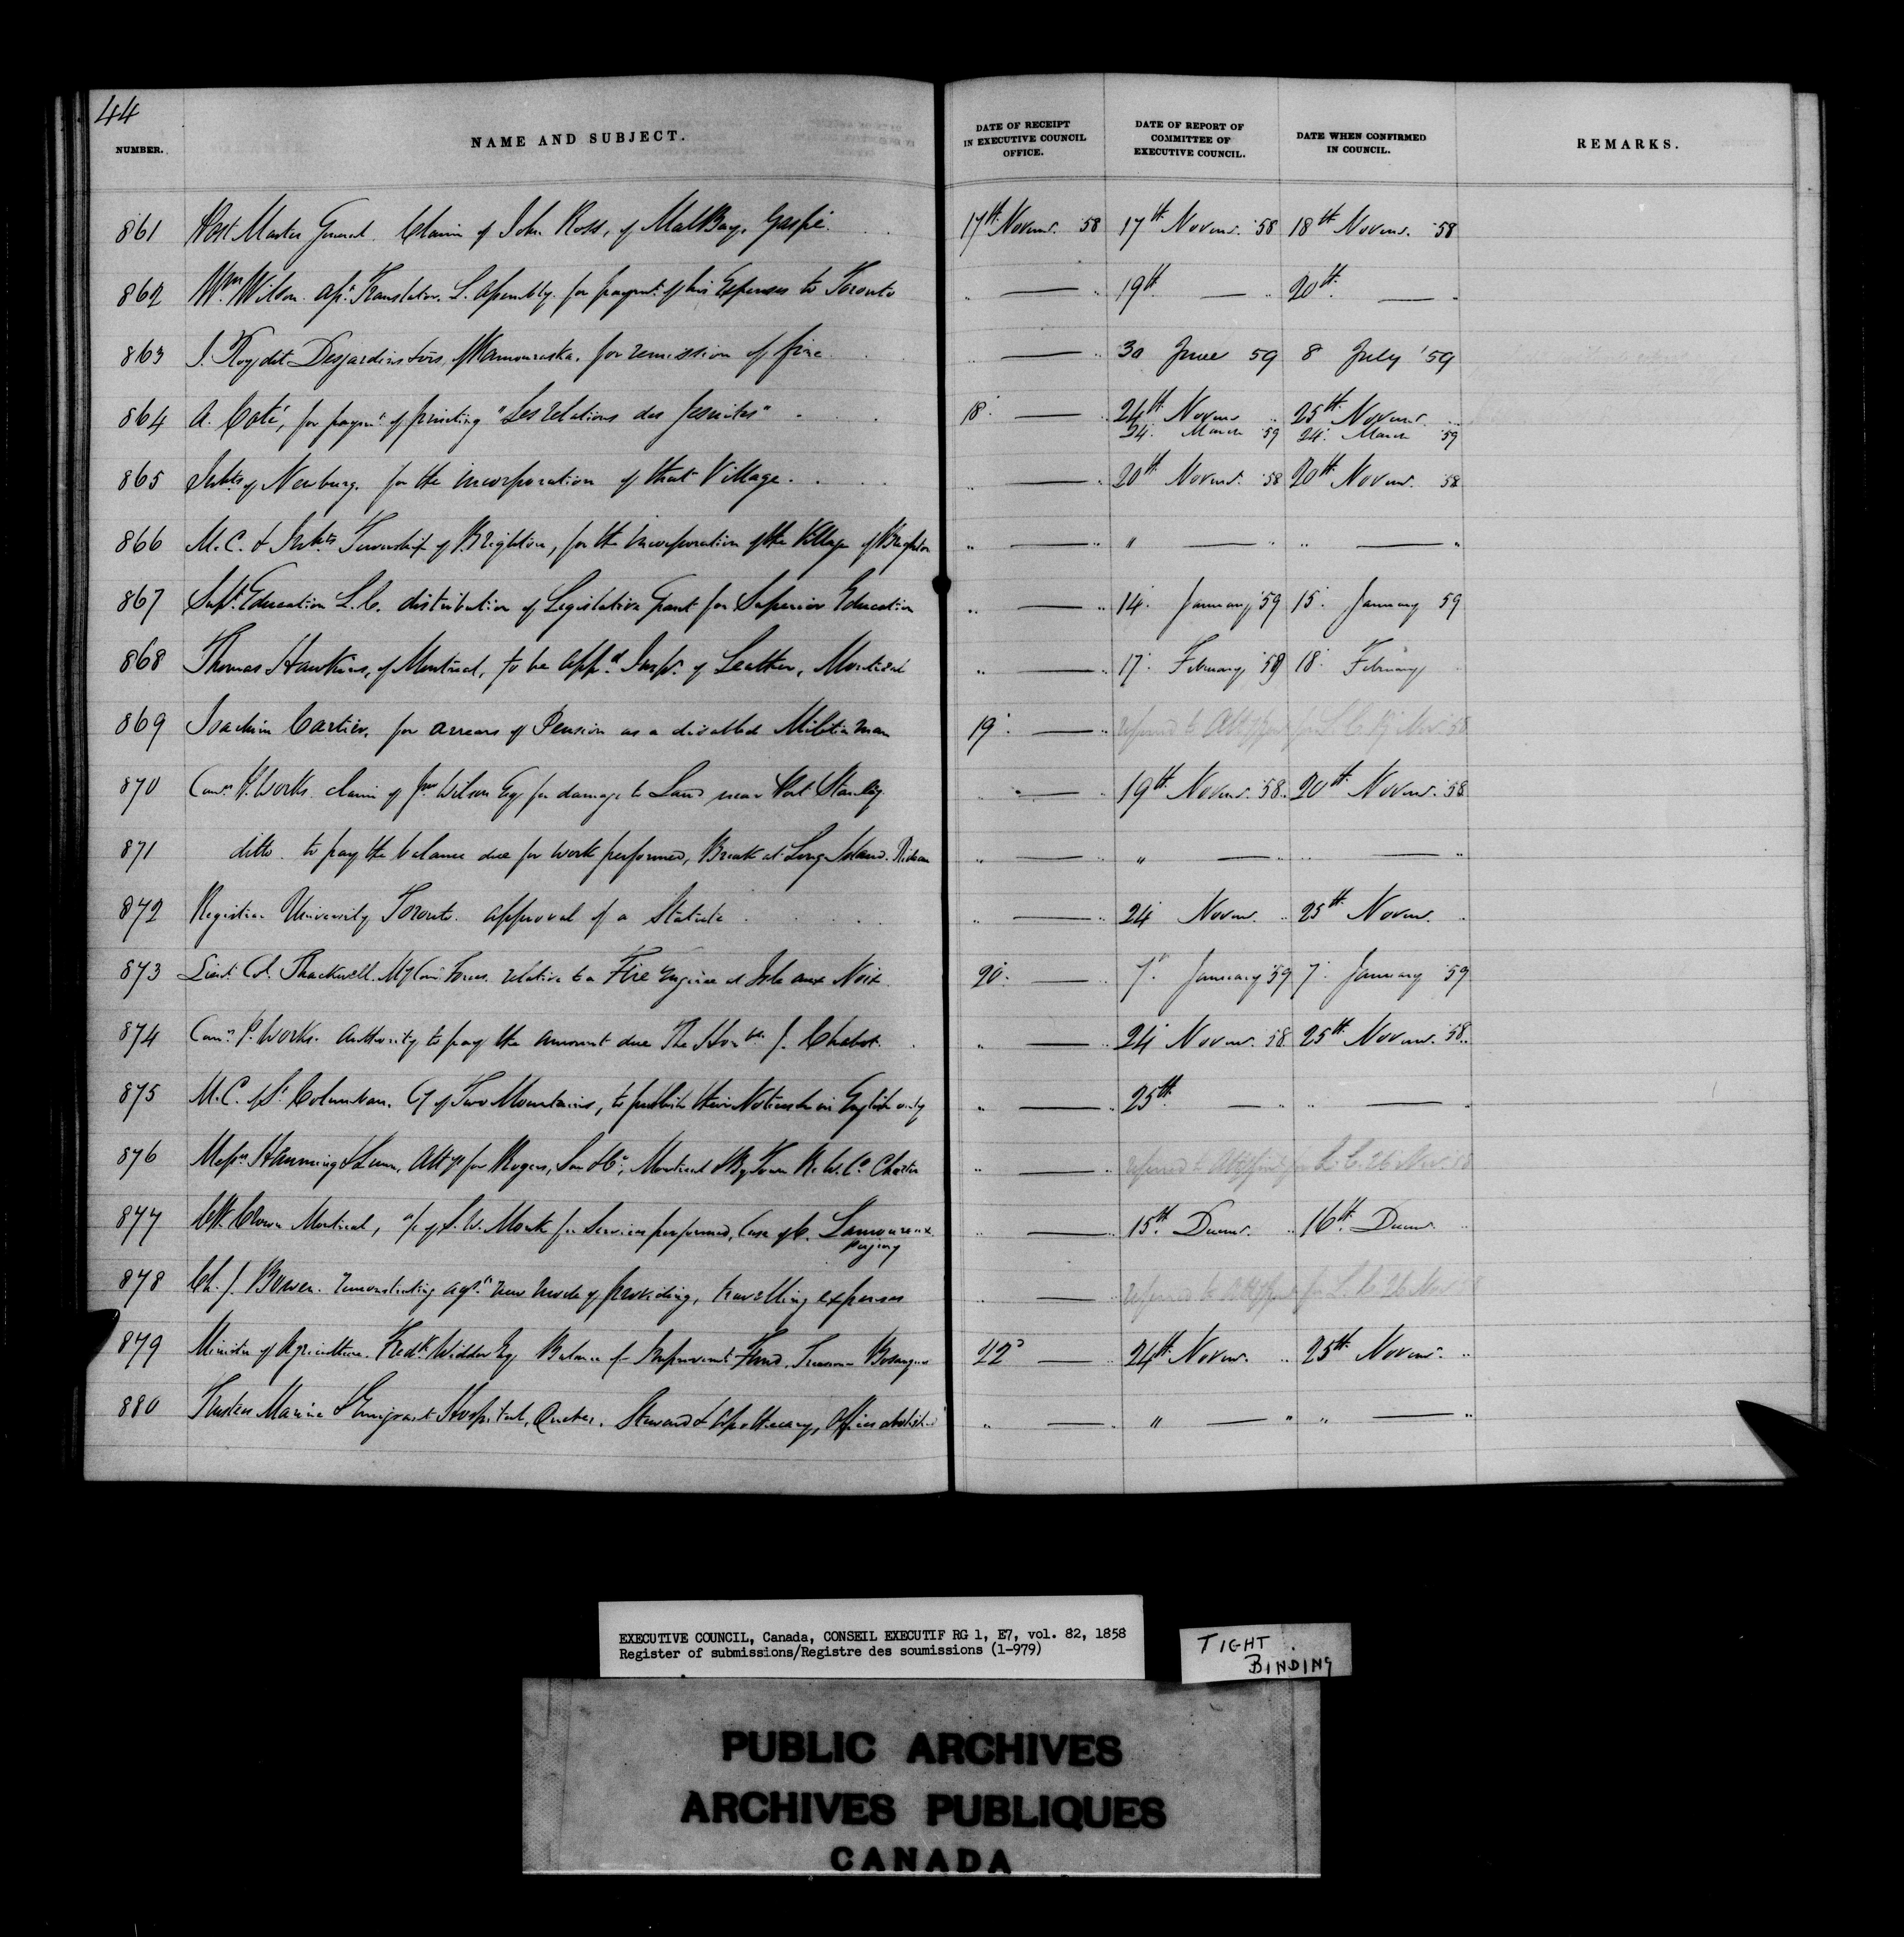 44
NUMBER. NAME AND SUBJECT. DATE OF RECEIPT IN EXECUTIVE COUNCIL OFFICE. DATE OF REPORT OF COMMITTEE OF EXECUTIVE COUNCIL. DATE WHEN CONFIRMED IN COUNCIL. REMARKS.
861 Post Master General. Claim of John Ross, of Mal Bay, Gaspé. 17th Novemr. '58 17th Novemr. '58 18th Novemr. '58
862 Wm Wilson. asst. Translator. L. Assembly. for paymt. of his Expenses to Toronto " — " 19th — " 20th — "
863 J. Roy dit Desjardins fvrs, Kamouraska. for remission of fine " — " 30 June 59 8 July '59
864 A. Coté, for paymt. of printing "Les relations des Jesuites" 18 — " 24th Novemr. " 25th Novemr. "
24. March 59 24. March '59
865 Inhts of Newburg. for the incorporation of that Village. " — " 20th Novemr. '58 20th Novemr. 58
866 M.C. & Inhts Township of Brighton, for the incorporation of the Village of Brighton " — " " — " " — "
867 Supt. Education L.C. distribution of Legislative Grant for Superior Education " — " 14. January '59 15. January 59
868 Thomas Hawkins, of Montreal, to be appd. Inspr. of Leather, Montreal " — " 17. February '59 18. February
869 Joachim Cartier, for arrears of Pension as a disabled Militia man 19. — " referred to Atty Genl for L.C. 19 Nov '58
870 Comrs P. Works claim of Jno Wilson Esq for damage to Land near Port Stanley " — " 19th Novemr. 58. 20th Novemr. '58
871 ditto. to pay the balance due for work performed, Break at Long Island. Rideau " — " " — " " — "
872 Registrar University Toronto. approval of a Statute " — " 24 Novemr. " 25th Novemr. "
873 Lieut. Col. Thackwell. relative to a Fire Engine at Isle aux Noix 20. — " 7. January '59 7. January '59
874 Comrs P. Works. Authority to pay the amount due The Honble J. Chabot. " — " 24 Novemr. 58 25th Novemr. '58.
875 M.C. of St Columban. Cy of Two Mountains, to publish their Notices &c in English only " — " 25th — " " — "
876 Messrs Hanning & Lunn, Attys for Rogers, Son & Co, Montreal & By Town R.W. Co Charter " — " referred to Atty Genl for L.C. 26 Nov '58
877 Clk. Crown Montreal, a/c of S.W. Monk for Services performed, Case of C. Lamoureux " — " 15th Decemr. " 16th Decemr. "
perjury
878 Ch. J. Bowen. remonstrating agst. new mode of providing, travelling expenses " — " referred to Atty Genl for L.C. 26 Nov '58
879 Minister of Agriculture. Fredk Widder Esq Balance of Improvemt Fund. Bosanquet 22d — " 24th Novemr. " 25th Novemr. "
880 Trustees Marine & Emigrant Hospital, Quebec. Steward & Apothecary, Offices abolished " — " " — " " — "
EXECUTIVE COUNCIL, Canada, CONSEIL EXECUTIF RG 1, E7, vol. 82, 1858
Register of submissions/Registre des soumissions (1-979)
TIGHT
BINDING
PUBLIC ARCHIVES
ARCHIVES PUBLIQUES
CANADA